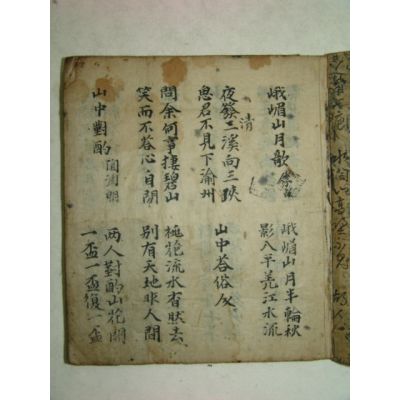 峨嵋山月歌
峨嵋山月半輪秋
影入平羌江水流
夜發三溪向三陜
清
思君不見下渝州
山中荅俗人
問余何事捿碧山
笑而不荅心自閑
桃花流水杳然去
別有天地非人間
山中對酌 陶淵明
両人對酌山花開
一盃一盃復一盃